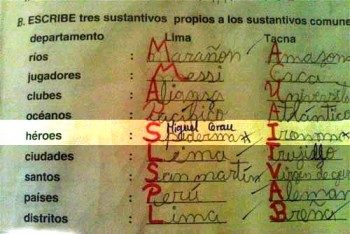 B. ESCRIBE tres sustantivos propios a los sustantivos comune
departamento : Lima Tacna
ríos : Marañon Amazona
jugadores : Messi Caca
clubes : Alianza Universi
océanos : Pacífico Atlántico
héroes : Miguel Grau Spiderman Ironma
ciudades : Lima Trujillo
santos : San martin Virgen de
países : Perú Aleman
distritos : Lima Breña